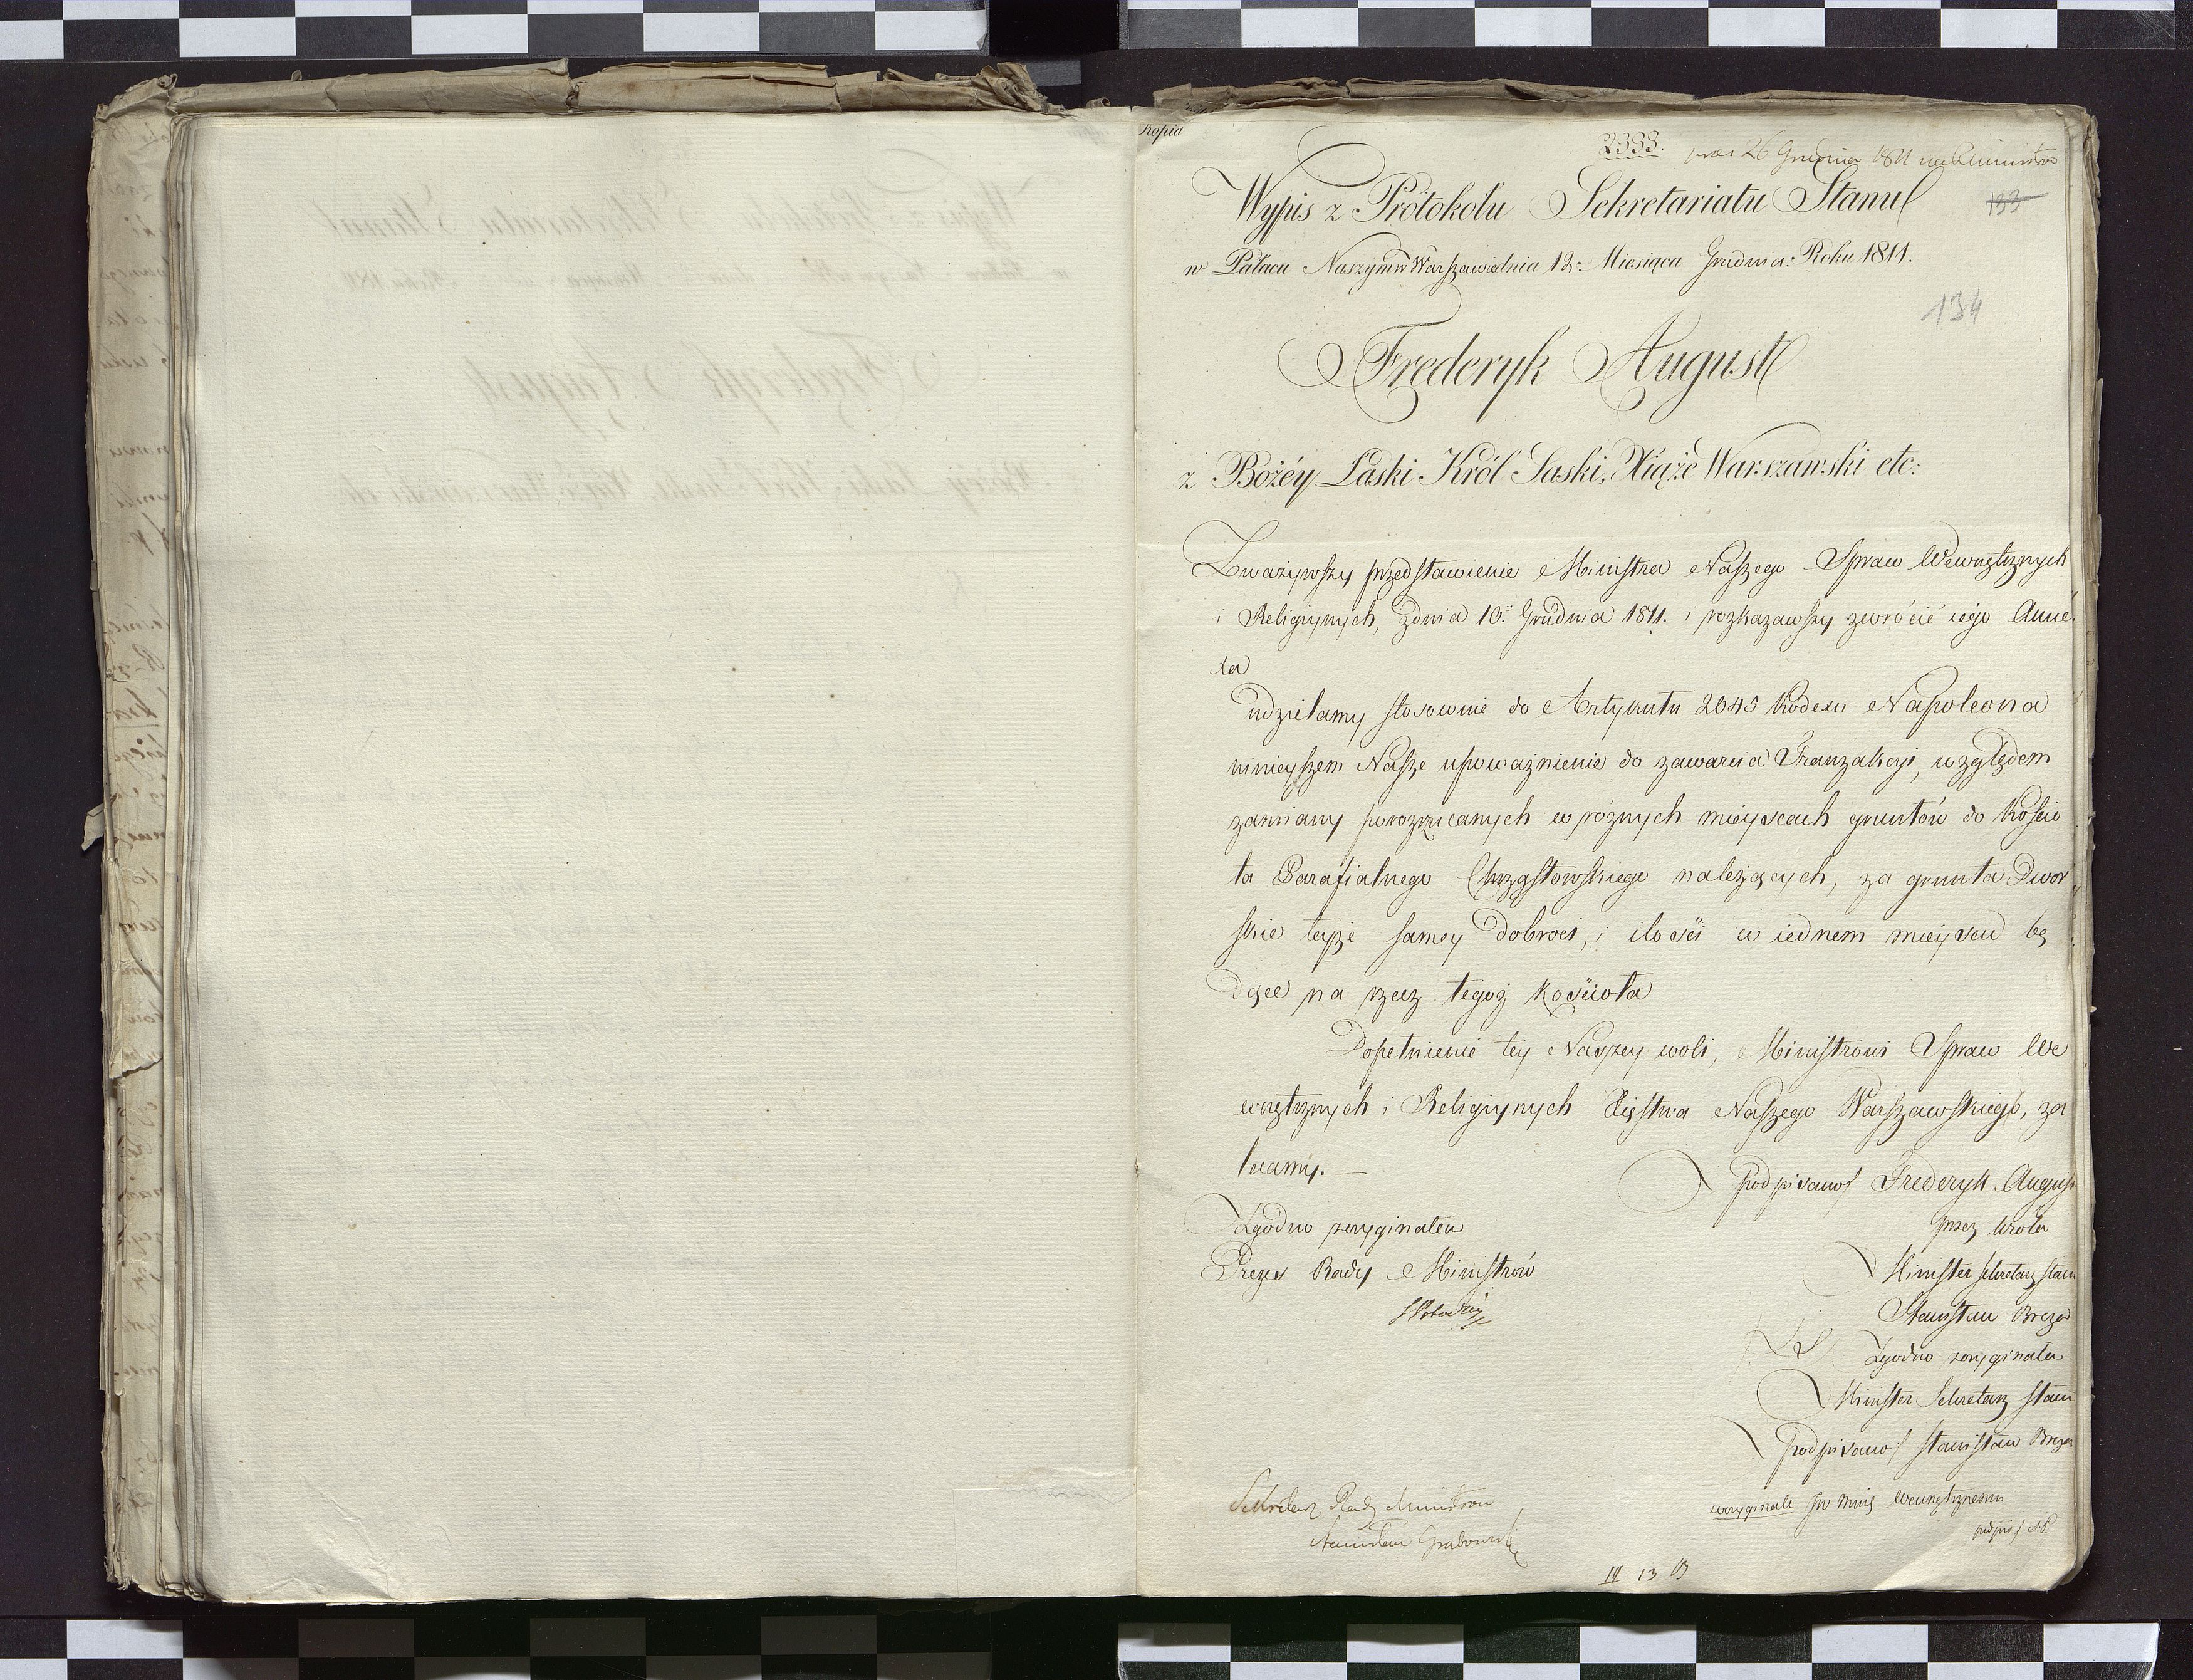 Kopia
2388. 26 Grudnia 1811
Wypis z Protokołu Sekretariatu Stanu
133
w Pałacu Naszym w Warszawie dnia 12: Miesiąca Grudnia: Roku 1811.
134
Frederyk August
z Bożéy Łaski Król Saski, Xiąże Warszawski etc:
Zważywszy przedstawienie Ministra Naszego Spraw Wewnętrznych
i Religiynych, z dnia 10. Grudnia 1811. i rozkazawszy zwrócić iego Anne
xa
udzielamy stosownie do Artykułu 2045 Kodexu Napoleona
ninieyszem Nasze upoważnienie do zawarcia Tranzakcyi, względem
zamiany porozrzucanych w różnych mieyscach gruntów do Kościo
ła Parafialnego Chrząstowskiego należących, za grunta Dwor
skie teyże samey dobroci, i ilości w iednem mieyscu bę
dące na rzecz tegoż kościoła
Dopełnienie tey Naszey woli, Ministrowi Spraw We
wnętrznych i Religiynych Xięstwa Naszego Warszawskiego, za
lecamy. —
podpisano/ Frederyk August
Zgodno z oryginałem
przez Króla
Prezes Rady Ministrów
Minister Sekretarz Stanu
SPotocki
Stanisław Breza
Zgodno z oryginałem
Minister Sekretarz Stanu
podpisano/ Stanisław Breza
Sekretarz Rady Ministrów
w oryginale po Wewnętrznemu
Stanisław Grabowski
13